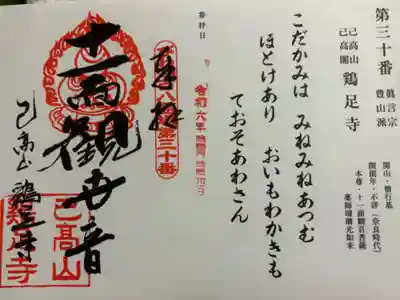 第三十番
己高山
己高閣
鶏足寺
眞言宗
豊山派
開山・僧行基
開創年・不詳(奈良時代)
本尊・十一面観音菩薩
薬師瑠璃光如来
こだかみは みねみねあつむ
ほとけあり おいもわかきも
ておそあわさん
参拝日
令和六年
奉拝
第三十番
十一面観世音
己高山 鶏足寺
己高山
鶏足寺